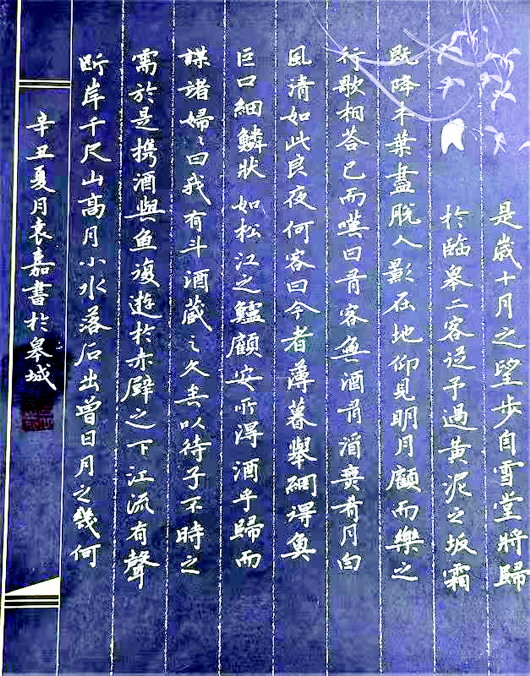 是歲十月之望步自雪堂將歸
於臨皋二客從予過黃泥之坂霜
既降木葉盡脫人影在地仰見明月顧而樂之
行歌相荅已而嘆曰有客無酒有酒無肴月白
風清如此良夜何客曰今者薄暮舉網得魚
巨口細鱗狀如松江之鱸顧安所得酒乎歸而
謀諸婦〻曰我有斗酒藏之久矣以待子不時之
需於是攜酒與魚復遊於赤壁之下江流有聲
斷岸千尺山高月小水落石出曾日月之幾何
辛丑夏月袁嘉書於皋城